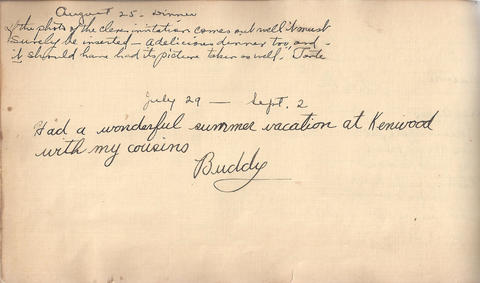 August 25 - Dinner
If the photo of the clever invitation comes out well it must
surely be inserted - a delicious dinner too, and
it should have had its picture taken as well.
July 29 — Sept. 2
Had a wonderful summer vacation at Kenwood
with my cousins
Buddy